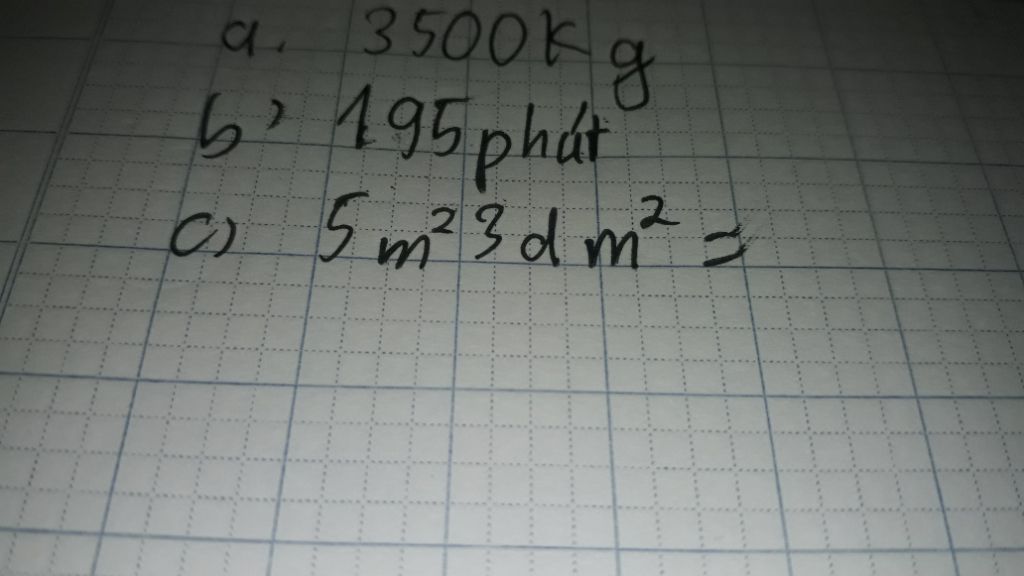 a. 3500kg
b) 195phút
c) 5m²3dm² =